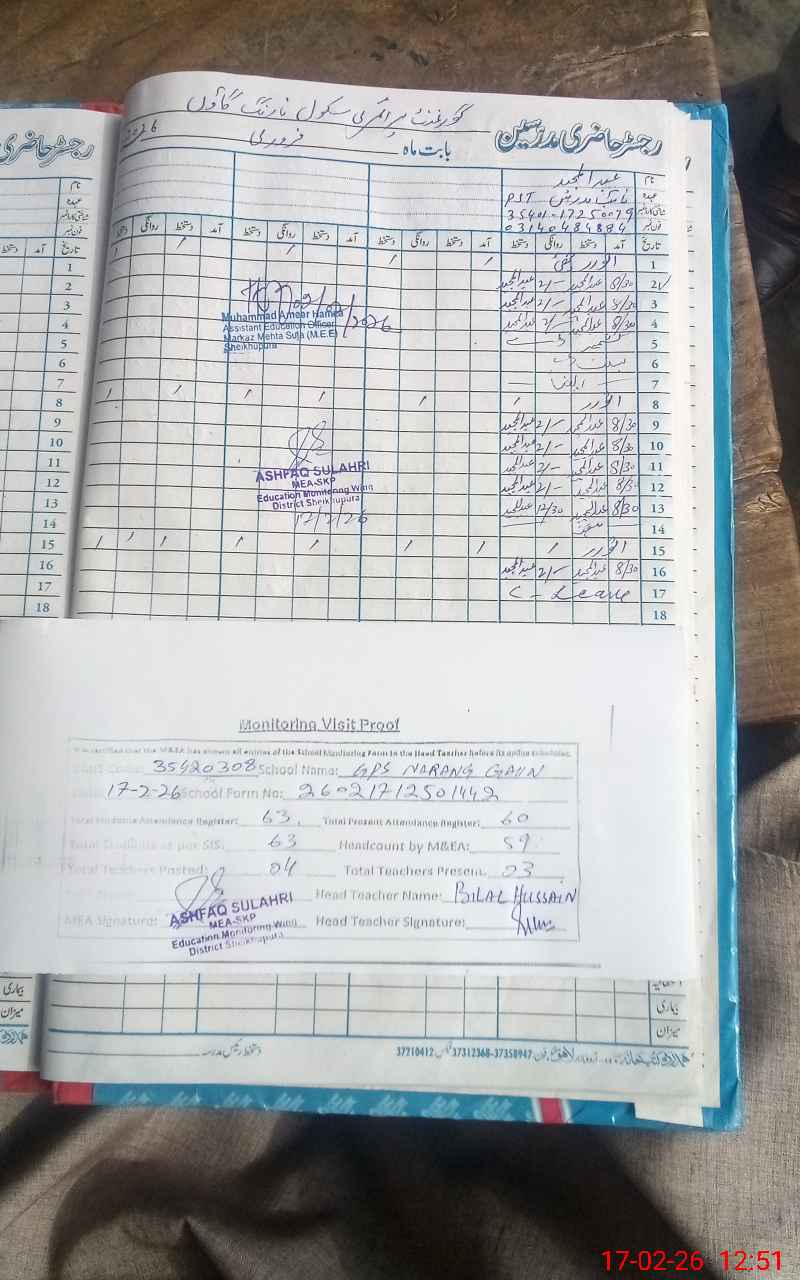 گورنمنٹ پرائمری سکول نارنگ گاؤں
رجسٹر حاضری مدرسین
بابت ماہ فروری 2026
نام عبدالمجید
عہدہ PST
35401-1725007-9
فون نمبر 03140484884
تاریخ آمد دستخط روانگی دستخط آمد دستخط روانگی دستخط آمد دستخط روانگی دستخط
1 اتوار
2 8/30 عبدالمجید 2/- عبدالمجید
3 8/30 عبدالمجید 2/- عبدالمجید
4 8/30 عبدالمجید 2/- عبدالمجید
5 کشمیر ڈے
6 بسنت
7
8 اتوار
9 8/30 عبدالمجید 2/- عبدالمجید
10 8/30 عبدالمجید 2/- عبدالمجید
11 8/30 عبدالمجید 2/- عبدالمجید
12 8/30 عبدالمجید 2/- عبدالمجید
13 8/30 عبدالمجید 12/30 عبدالمجید
14 ہفتہ
15 اتوار
16 8/30 عبدالمجید 2/- عبدالمجید
17 C- Leave
18
02/02/2026
Muhammad Ameer Hamza
Assistant Education Officer
Markaz Mehta Suja (M.E.E)
Sheikhupura
ASHFAQ SULAHRI
MEA-SKP
Education Monitoring Wing
District Sheikhupura
12/2/26
Monitoring Visit Proof
It is certified that the M&EA has shown all entries of the School Monitoring Form to the Head Teacher before its online submission.
35420308 School Name: GPS NARANG GAUN
17-2-26 School Form No: 26021712501442
Total Students Attendance Register: 63. Total Present Attendance Register: 60
Total Students as per SIS: 63 Headcount by M&EA: 59
Total Teachers Posted: 04 Total Teachers Present: 03
Head Teacher Name: BILAL HUSSAIN
MEA Signature: Head Teacher Signature:
ASHFAQ SULAHRI
MEA-SKP
Education Monitoring Wing
District Sheikhupura
بیماری
میزان
دستخط رئیس مدرسہ
37210412 37312368-37358947
17-02-26 12:51